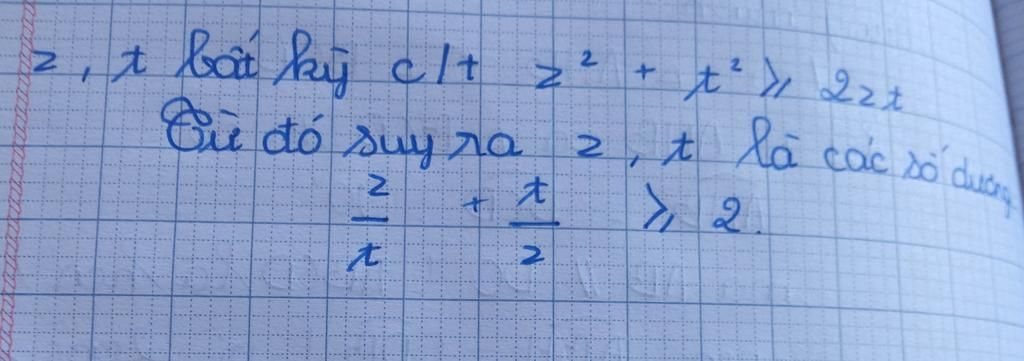 z, t bất kỳ c/t z² + t² ⩾ 2zt
Từ đó suy ra z, t là các số dương
z/t + t/z ⩾ 2.